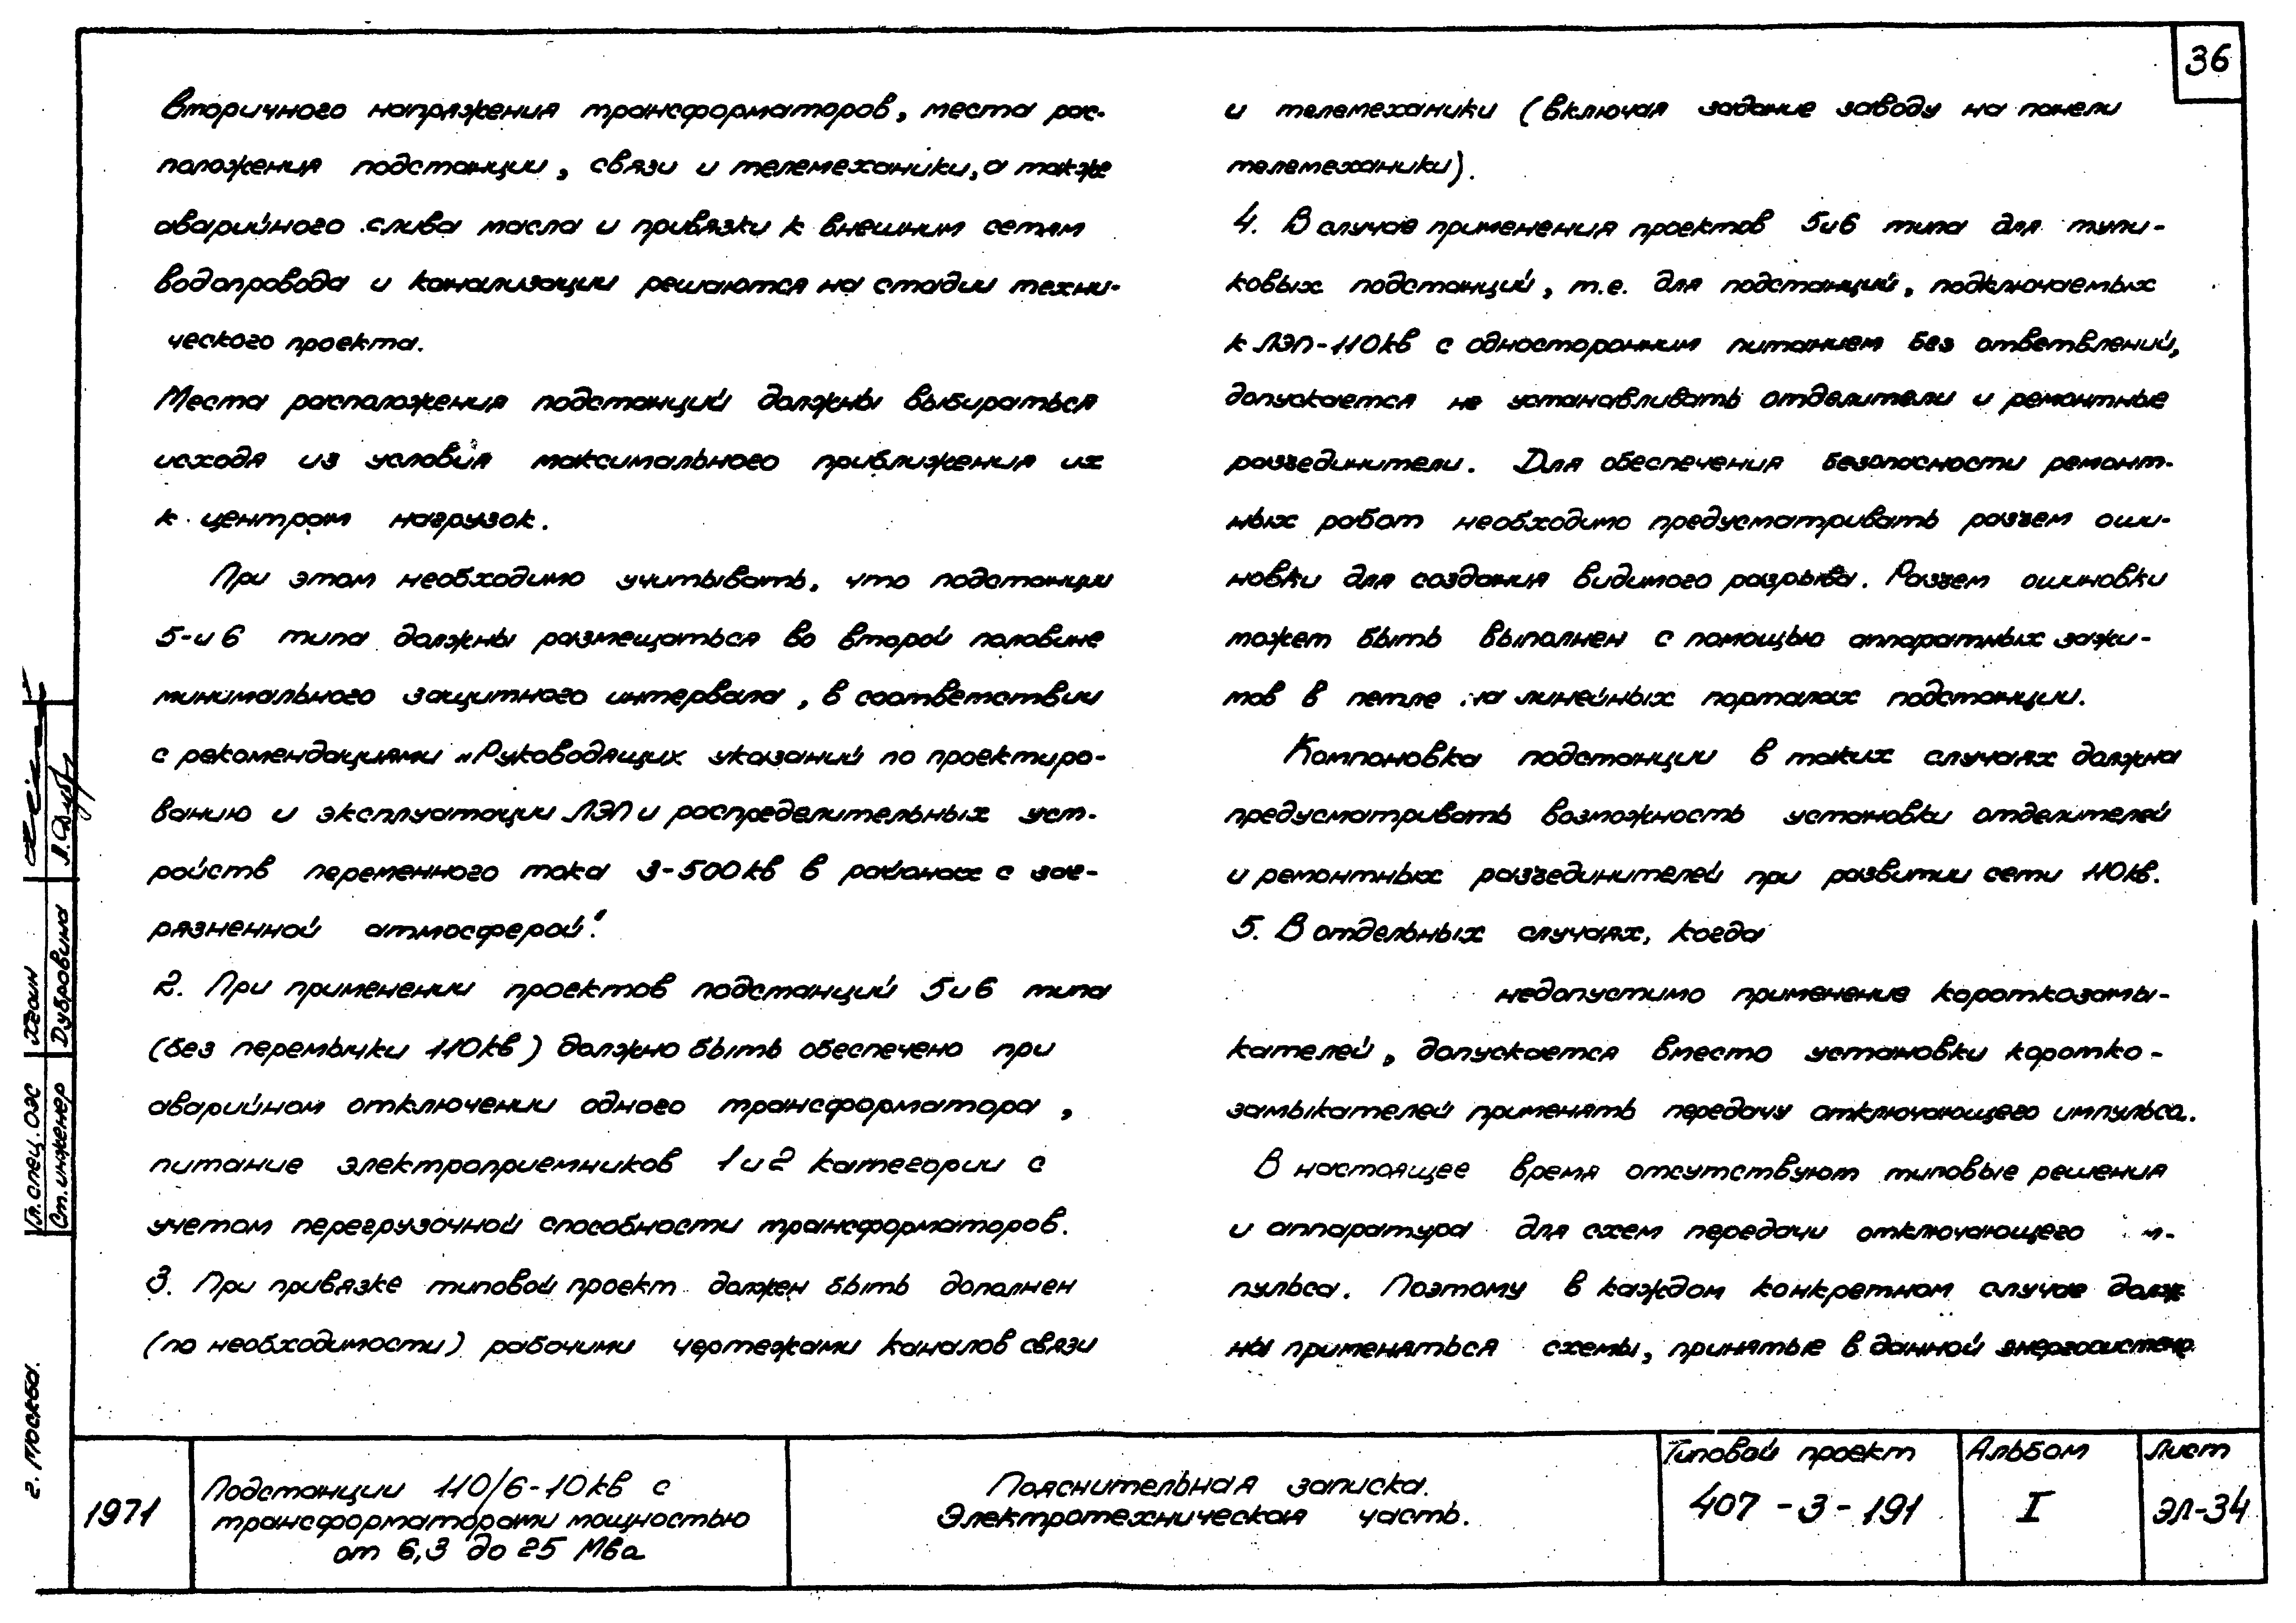 36
вторичного напряжения трансформаторов, места рас-
положения подстанции, связи и телемеханики, а также
аварийного слива масла и привязки к внешним сетям
водопровода и канализации решаются на стадии техни-
ческого проекта.
Места расположения подстанций должны выбираться
исходя из условия максимального приближения их
к центрам нагрузок.
При этом необходимо учитывать, что подстанции
5-и 6 типа должны размещаться во второй половине
минимального защитного интервала, в соответствии
с рекомендациями „Руководящих указаний по проектиро-
ванию и эксплуатации ЛЭП и распределительных уст-
ройств переменного тока 3-500кв в районах с заг-
рязненной атмосферой".
2. При применении проектов подстанций 5и6 типа
(без перемычки 110кв) должно быть обеспечено при
аварийном отключении одного трансформатора,
питание электроприемников 1 и 2 категории с
учетом перегрузочной способности трансформаторов.
3. При привязке типовой проект должен быть дополнен
(по необходимости) рабочими чертежами каналов связи
и телемеханики (включая задание заводу на панели
телемеханики).
4. В случае применения проектов 5и6 типа для тупи-
ковых подстанций, т.е. для подстанций, подключаемых
к ЛЭП-110кв с односторонним питанием без ответвлений,
допускается не устанавливать отделители и ремонтные
разъединители. Для обеспечения безопасности ремонт-
ных работ необходимо предусматривать разъем оши-
новки для создания видимого разрыва. Разъем ошиновки
может быть выполнен с помощью аппаратных зажи-
мов в петле на линейных порталах подстанции.
Компоновка подстанции в таких случаях должна
предусматривать возможность установки отделителей
и ремонтных разъединителей при развитии сети 110кв.
5. В отдельных случаях, когда
недопустимо применение короткозамы-
кателей, допускается вместо установки коротко-
замыкателей применять передачу отключающего импульса.
В настоящее время отсутствуют типовые решения
и аппаратура для схем передачи отключающего м-
пульса. Поэтому в каждом конкретном случае долж
ны применяться схемы, принятые в данной энергосистеме
Гл. спец. ОЭС Хволин
Ст. инженер Дубровина Л.Дуб
г. Москва.
1971
Подстанции 110/6-10кв с
трансформаторами мощностью
от 6,3 до 25 Мва
Пояснительная записка.
Электротехническая часть.
Типовой проект
407-3-191
Альбом
I
Лист
ЭЛ-34